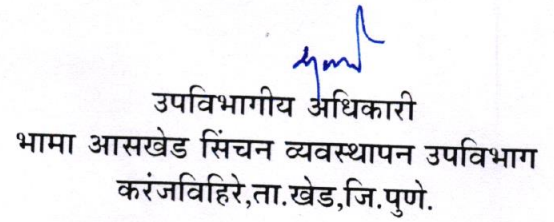 उपविभागीय अधिकारी
भामा आसखेड सिंचन व्यवस्थापन उपविभाग
करंजविहिरे,ता.खेड,जि.पुणे.